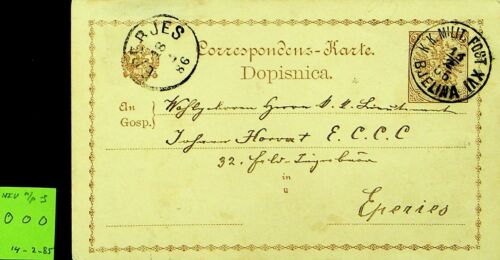 EPERJES
18
86
Correspondenz-Karte.
Dopisnica.
K.K. MILIT. POST XVI
14
BJELINA
An
Gosp.
Wohlgeboren Herrn k. k. Lieutenant
Johann Horvat E. C. C. C
32. Feld-
in
u
Eperies
000
14-2-85